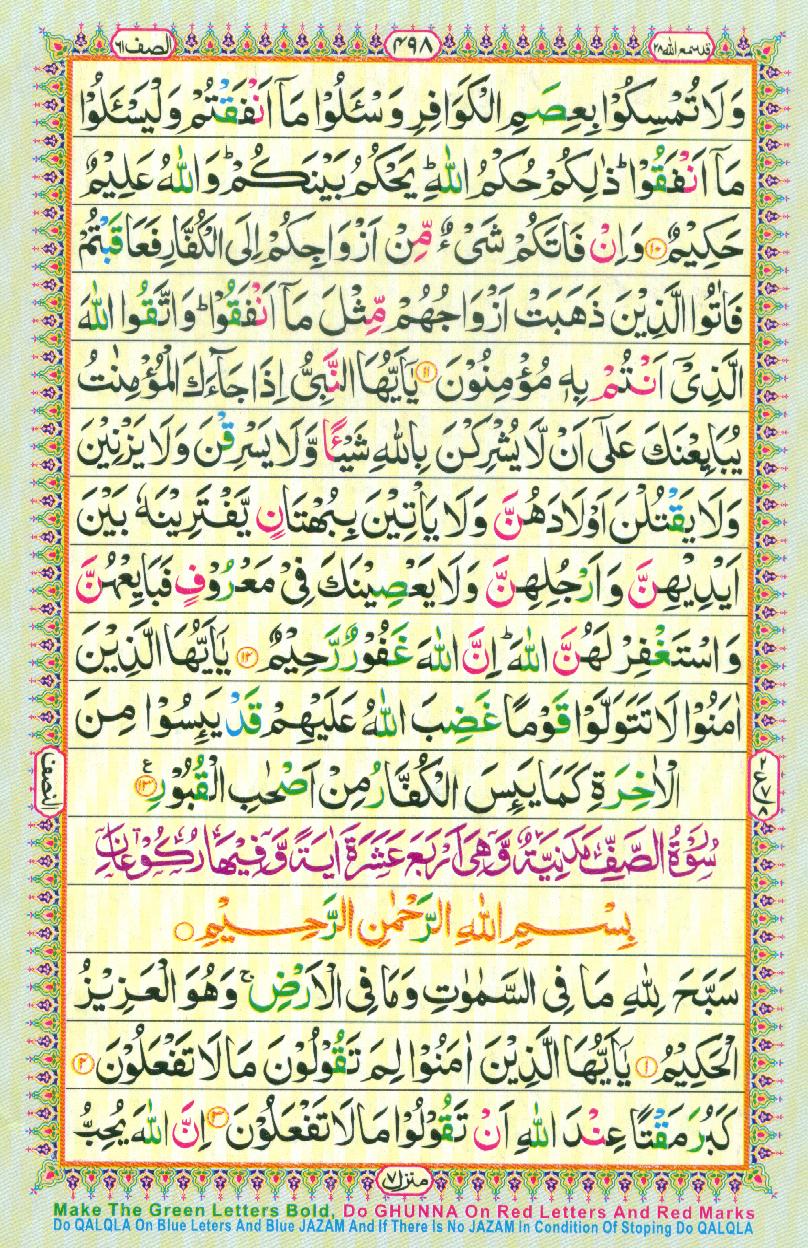 قدسمع الله ٢٨
٤٩٨
الصف ٦١
وَلَا تُمْسِكُوْا بِعِصَمِ الْكَوَافِرِ وَسْـَٔلُوْا مَاۤ اَنْفَقْتُمْ وَلْيَسْـَٔلُوْا
مَاۤ اَنْفَقُوْا ؕ ذٰلِكُمْ حُكْمُ اللّٰهِ ؕ يَحْكُمُ بَيْنَكُمْ ؕ وَاللّٰهُ عَلِيْمٌ
حَكِيْمٌ ﴿۱۰﴾ وَاِنْ فَاتَكُمْ شَىْءٌ مِّنْ اَزْوَاجِكُمْ اِلَى الْكُفَّارِ فَعَاقَبْتُمْ
فَاٰتُوا الَّذِيْنَ ذَهَبَتْ اَزْوَاجُهُمْ مِّثْلَ مَاۤ اَنْفَقُوْا ؕ وَاتَّقُوا اللّٰهَ
الَّذِىْۤ اَنْتُمْ بِهٖ مُؤْمِنُوْنَ ﴿۱۱﴾ يٰۤاَيُّهَا النَّبِىُّ اِذَا جَآءَكَ الْمُؤْمِنٰتُ
يُبَايِعْنَكَ عَلٰۤى اَنْ لَّا يُشْرِكْنَ بِاللّٰهِ شَيْـًٔا وَّلَا يَسْرِقْنَ وَلَا يَزْنِيْنَ
وَلَا يَقْتُلْنَ اَوْلَادَهُنَّ وَلَا يَاْتِيْنَ بِبُهْتَانٍ يَّفْتَرِيْنَهٗ بَيْنَ
اَيْدِيْهِنَّ وَاَرْجُلِهِنَّ وَلَا يَعْصِيْنَكَ فِىْ مَعْرُوْفٍ فَبَايِعْهُنَّ
وَاسْتَغْفِرْ لَهُنَّ اللّٰهَ ؕ اِنَّ اللّٰهَ غَفُوْرٌ رَّحِيْمٌ ﴿۱۲﴾ يٰۤاَيُّهَا الَّذِيْنَ
اٰمَنُوْا لَا تَتَوَلَّوْا قَوْمًا غَضِبَ اللّٰهُ عَلَيْهِمْ قَدْ يَىِٕسُوْا مِنَ
الْاٰخِرَةِ كَمَا يَىِٕسَ الْكُفَّارُ مِنْ اَصْحٰبِ الْقُبُوْرِ ﴿۱۳﴾ ع
النصف
سُوْرَةُ الصَّفِّ مَدَنِيَّةٌ وَّهِىَ اَرْبَعَ عَشَرَةَ اٰيَةً وَّفِيْهَا رُكُوْعَانِ
بِسْمِ اللّٰهِ الرَّحْمٰنِ الرَّحِيْمِ ○
سَبَّحَ لِلّٰهِ مَا فِى السَّمٰوٰتِ وَمَا فِى الْاَرْضِ ۚ وَهُوَ الْعَزِيْزُ
الْحَكِيْمُ ﴿۱﴾ يٰۤاَيُّهَا الَّذِيْنَ اٰمَنُوْا لِمَ تَقُوْلُوْنَ مَا لَا تَفْعَلُوْنَ ﴿۲﴾
كَبُرَ مَقْتًا عِنْدَ اللّٰهِ اَنْ تَقُوْلُوْا مَا لَا تَفْعَلُوْنَ ﴿۳﴾ اِنَّ اللّٰهَ يُحِبُّ
منزل ٧
Make The Green Letters Bold, Do GHUNNA On Red Letters And Red Marks
Do QALQLA On Blue Leters And Blue JAZAM And If There Is No JAZAM In Condition Of Stoping Do QALQLA